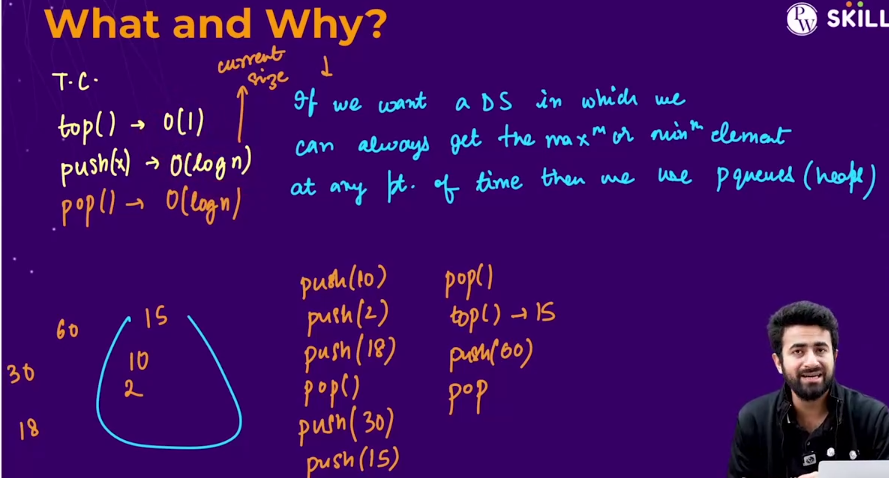 What and Why?
PW SKILL
current
size
T.C.
top() → O(1)
push(x) → O(log n)
pop() → O(log n)
If we want a DS in which we
can always get the maxᵐ or minᵐ element
at any pt. of time then we use pqueues (heaps)
push(10)
push(2)
push(18)
pop()
push(30)
push(15)
pop()
top() → 15
push(60)
pop
15
10
2
60
30
18